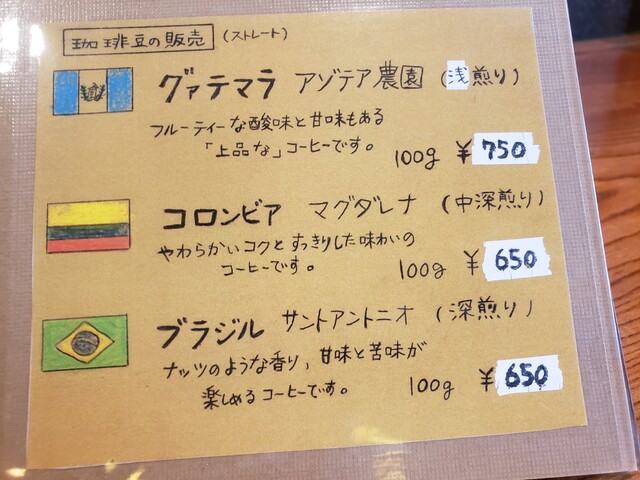 珈琲豆の販売 (ストレート)
グァテマラ アゾテア農園 (浅煎り)
フルーティーな酸味と甘味もある
「上品な」コーヒーです。
100g ¥750
コロンビア マグダレナ (中深煎り)
やわらかいコクとすっきりした味わいの
コーヒーです。
100g ¥650
ブラジル サントアントニオ (深煎り)
ナッツのような香り, 甘味と苦味が
楽しめるコーヒーです。
100g ¥650